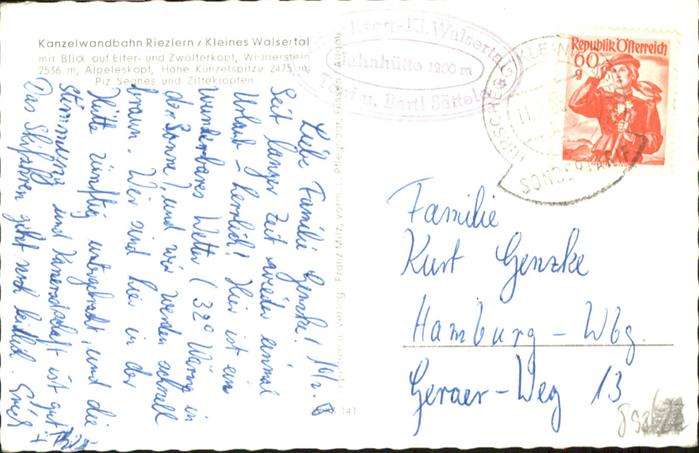 Kanzelwandbahn Riezlern / Kleines Walsertal
mit Blick auf Elfer- und Zwölferkopf, Widderstein
2536 m, Alpeleskopf, Hohe Künzelspitze 2415 m,
Piz Segnes und Zitterklapfen
Kl. Walsertal
1200 m
Bertl
Republik Österreich
60
g
SONDERTARIF
16/2.
Liebe Familie Genzke!
Seit langer Zeit wieder einmal
Urlaub – herrlich! Hier ist ein
wunderbares Wetter (32° Wärme in
der Sonne), und wir werden schnell
braun. Wir sind hier in der
Hütte zünftig untergebracht, und die
Stimmung und Kameradschaft ist gut.
Das Skifahren geht auch leidlich.
Familie
Kurt Genzke
Hamburg – Wbg.
Geraer-Weg 13